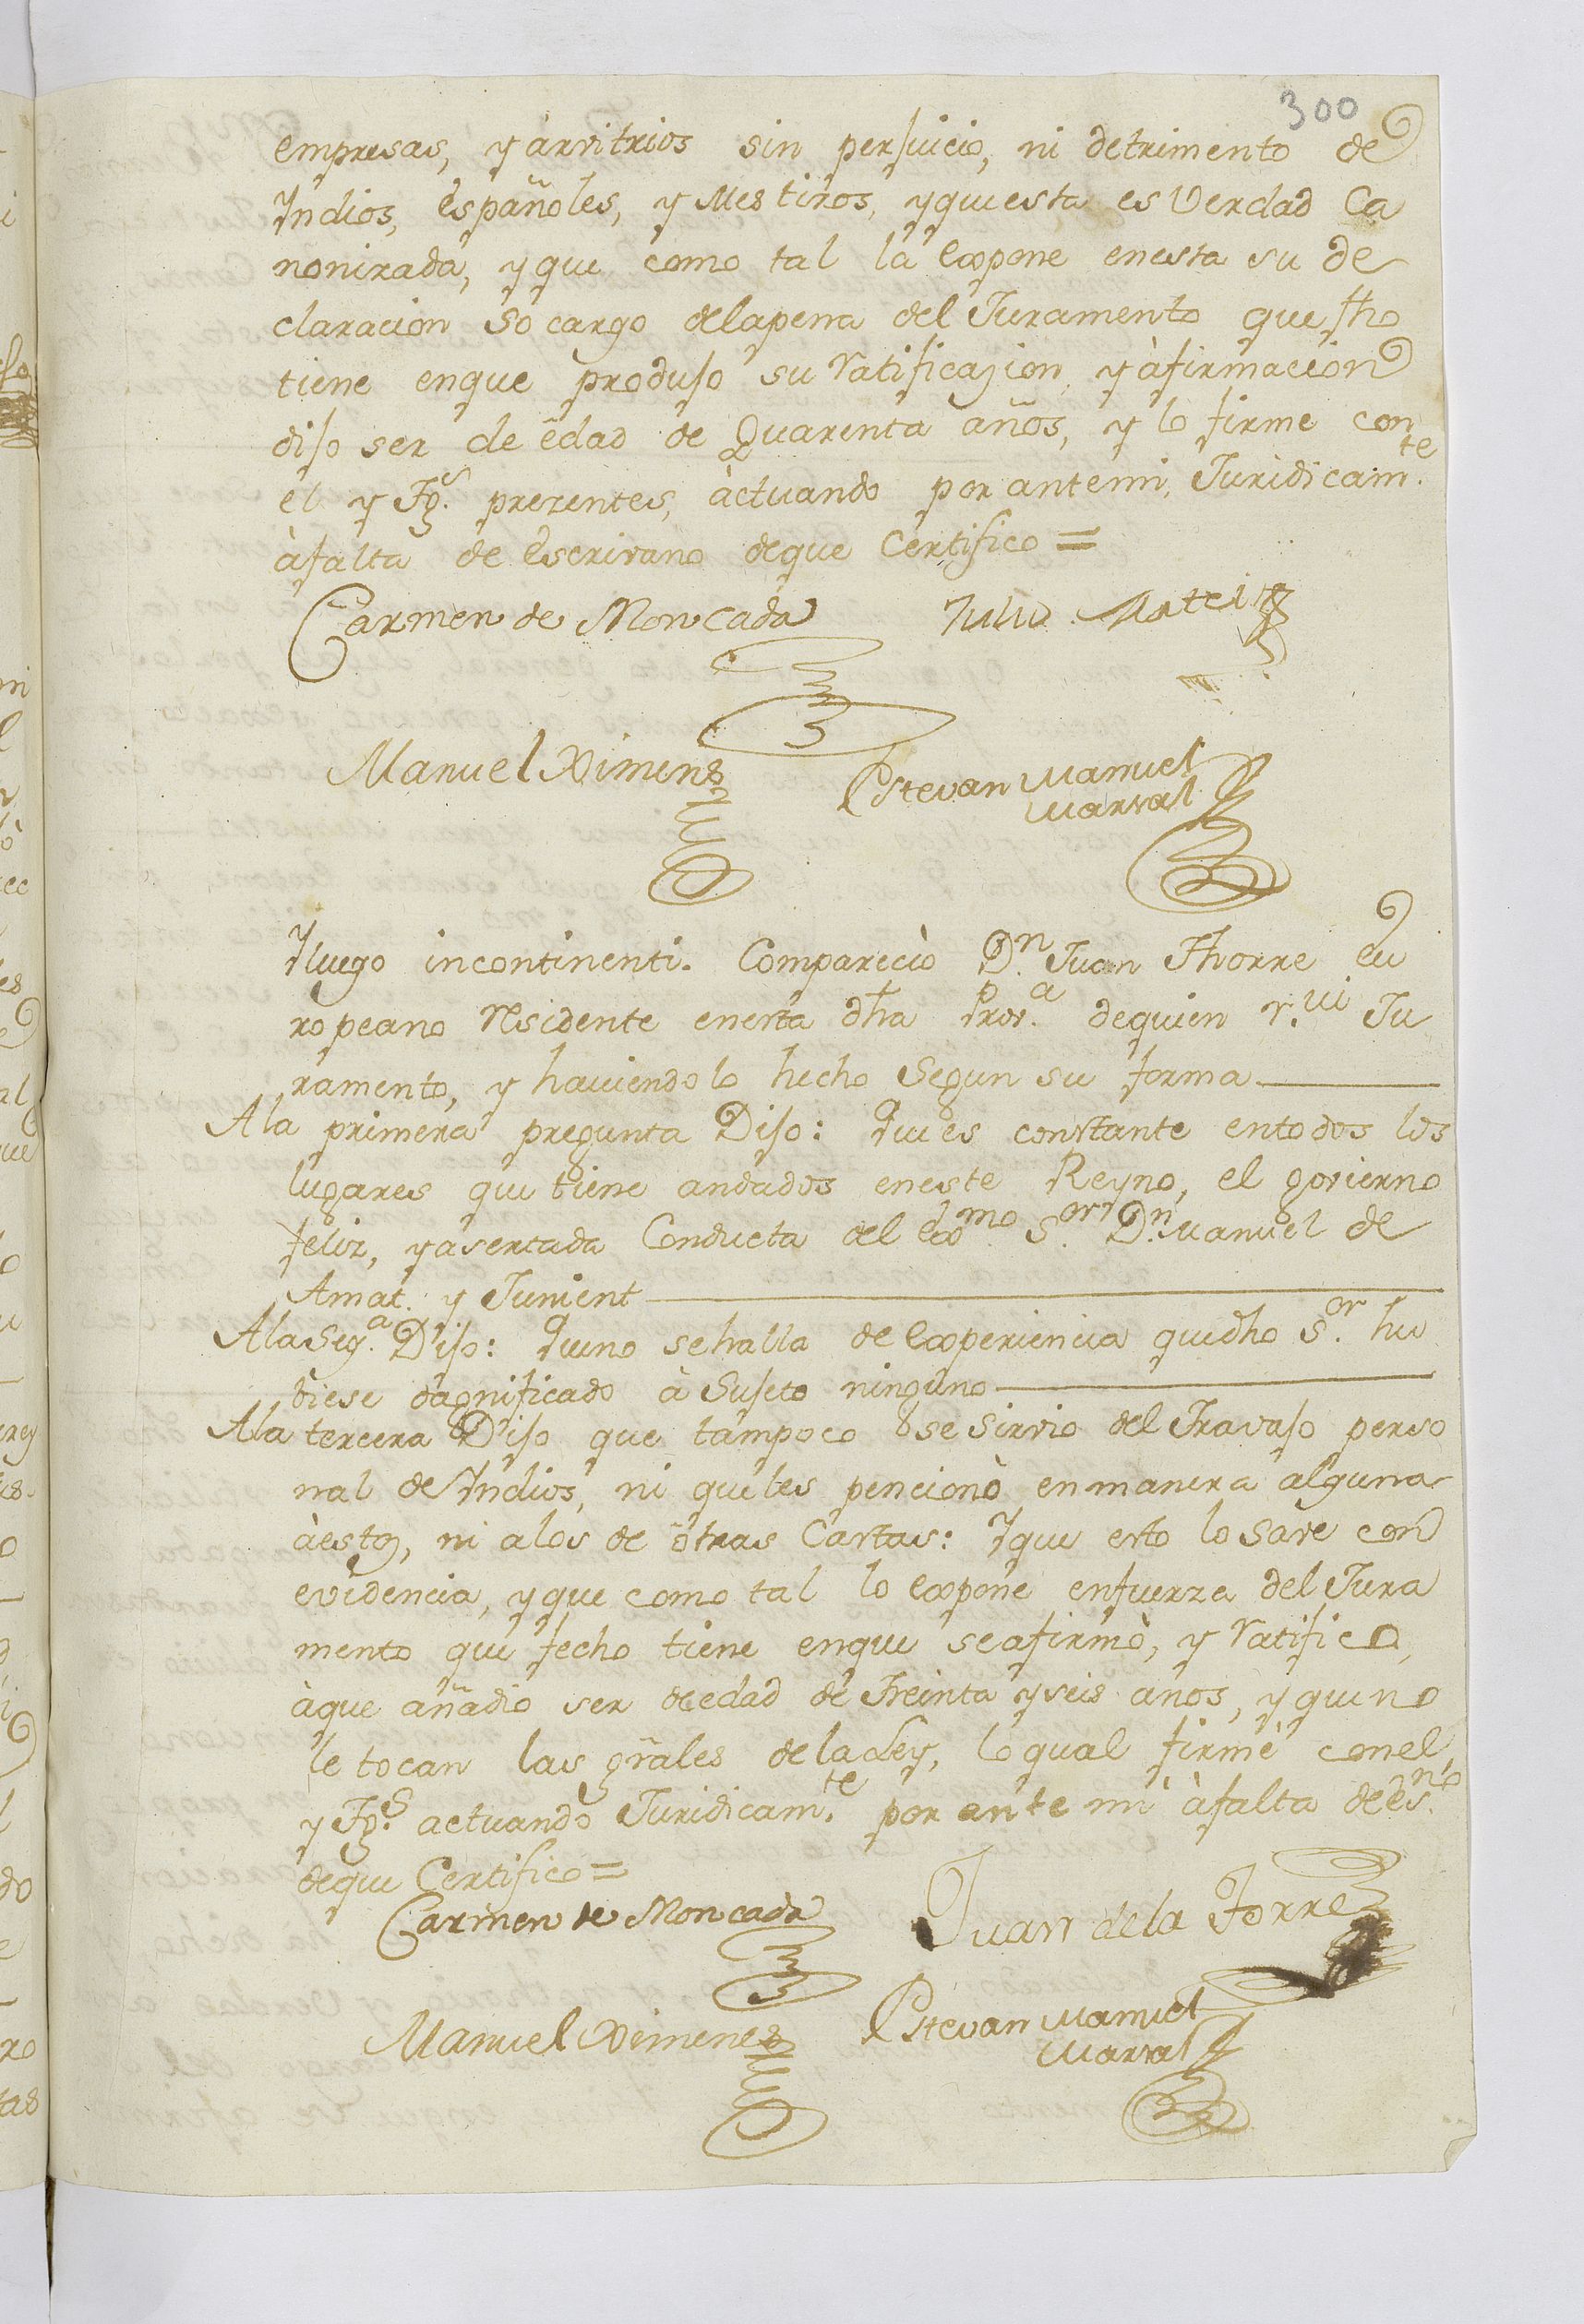 300
empresas, y àrvitrios sin perjuicio, ni detrimento de
Yndios, Españoles, y Mestizos, y que esta es Verdad Ca
nonizada, y que como tal la Expone en esta su de
claracion so cargo de la pena del Juramento que fho
tiene en que produjo su ratificazion, y àfirmacion
dijo ser de edad de Quarenta años, y lo firme con
el y Tgs. prezentes, àctuando por ante mi, Juridicamte.
àfalta de Escrivano de que Certifico =
Carmen de Moncada Julio Matei
Manuel Ximens Estevan Manuel
Marval
Yluego incontinenti. Compareciò Dn. Juan Thorre Eu
ropeano residente en esta dha Prova. de quien r.vi Ju
ramento, y haviendolo hecho Segun su forma
A la primera pregunta Dijo: Que es constante en todos los
lugares que tiene andados en este Reyno, el govierno
feliz, y asertada Conducta del Exmo. Sor. Dn. Manuel de
Amat. y Junient
A la Sega. Dijo: Que no se halla de Experiencia que dho Sor. hu
viese dagnificado à Sujeto ninguno
A la tercera Dijo que tampoco se Sirvio del Travajo perso
nal de Yndios, ni que les pencionò en manera alguna
à estos, ni a los de otras Castas: Y que esto lo Save con
evidencia, y que como tal lo Expone en fuerza del Jura
mento que fecho tiene en que se afirmò, y ratificò,
àque añadio ser de edad de Treinta y seis anos, y que no
le tocan las grãles de la Ley, lo qual firmè con el,
y Tgs. actuando Juridicamte. por ante mi àfalta de Esno.
de que Certifico =
Carmen de Moncada Juan de la Torre
Manuel Ximenes Estevan Manuel
Marval